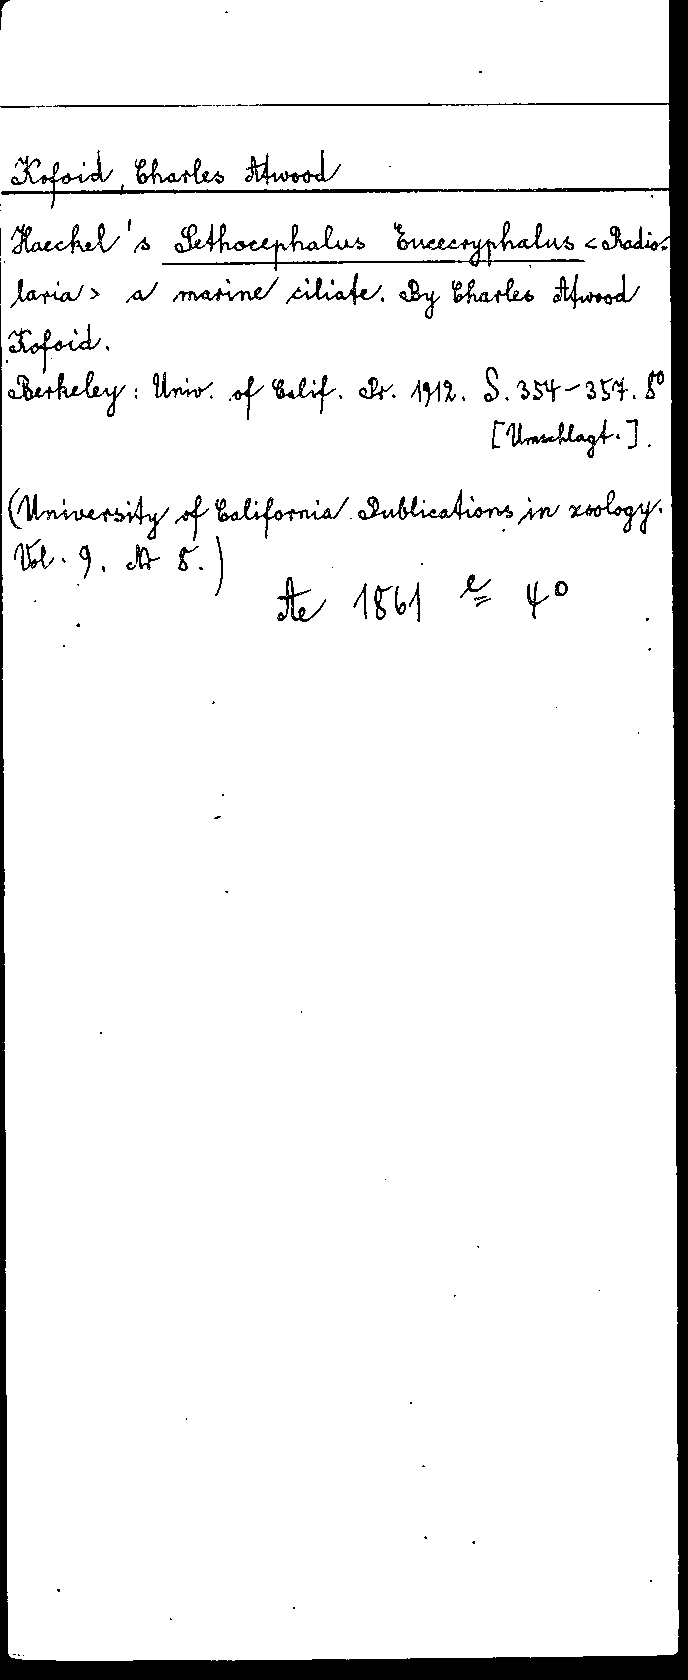 Kofoid, Charles Atwood
Haeckel's Sethocephalus Eucecryphalus <Radio-
laria> a marine ciliate. By Charles Atwood
Kofoid.
Berkeley: Univ. of Calif. Pr. 1912. S. 354-357. 8°
[Umschlagt.].
(University of California Publications in zoology.
Vol. 9. Nr 8.)
Ae 1861 e 4°